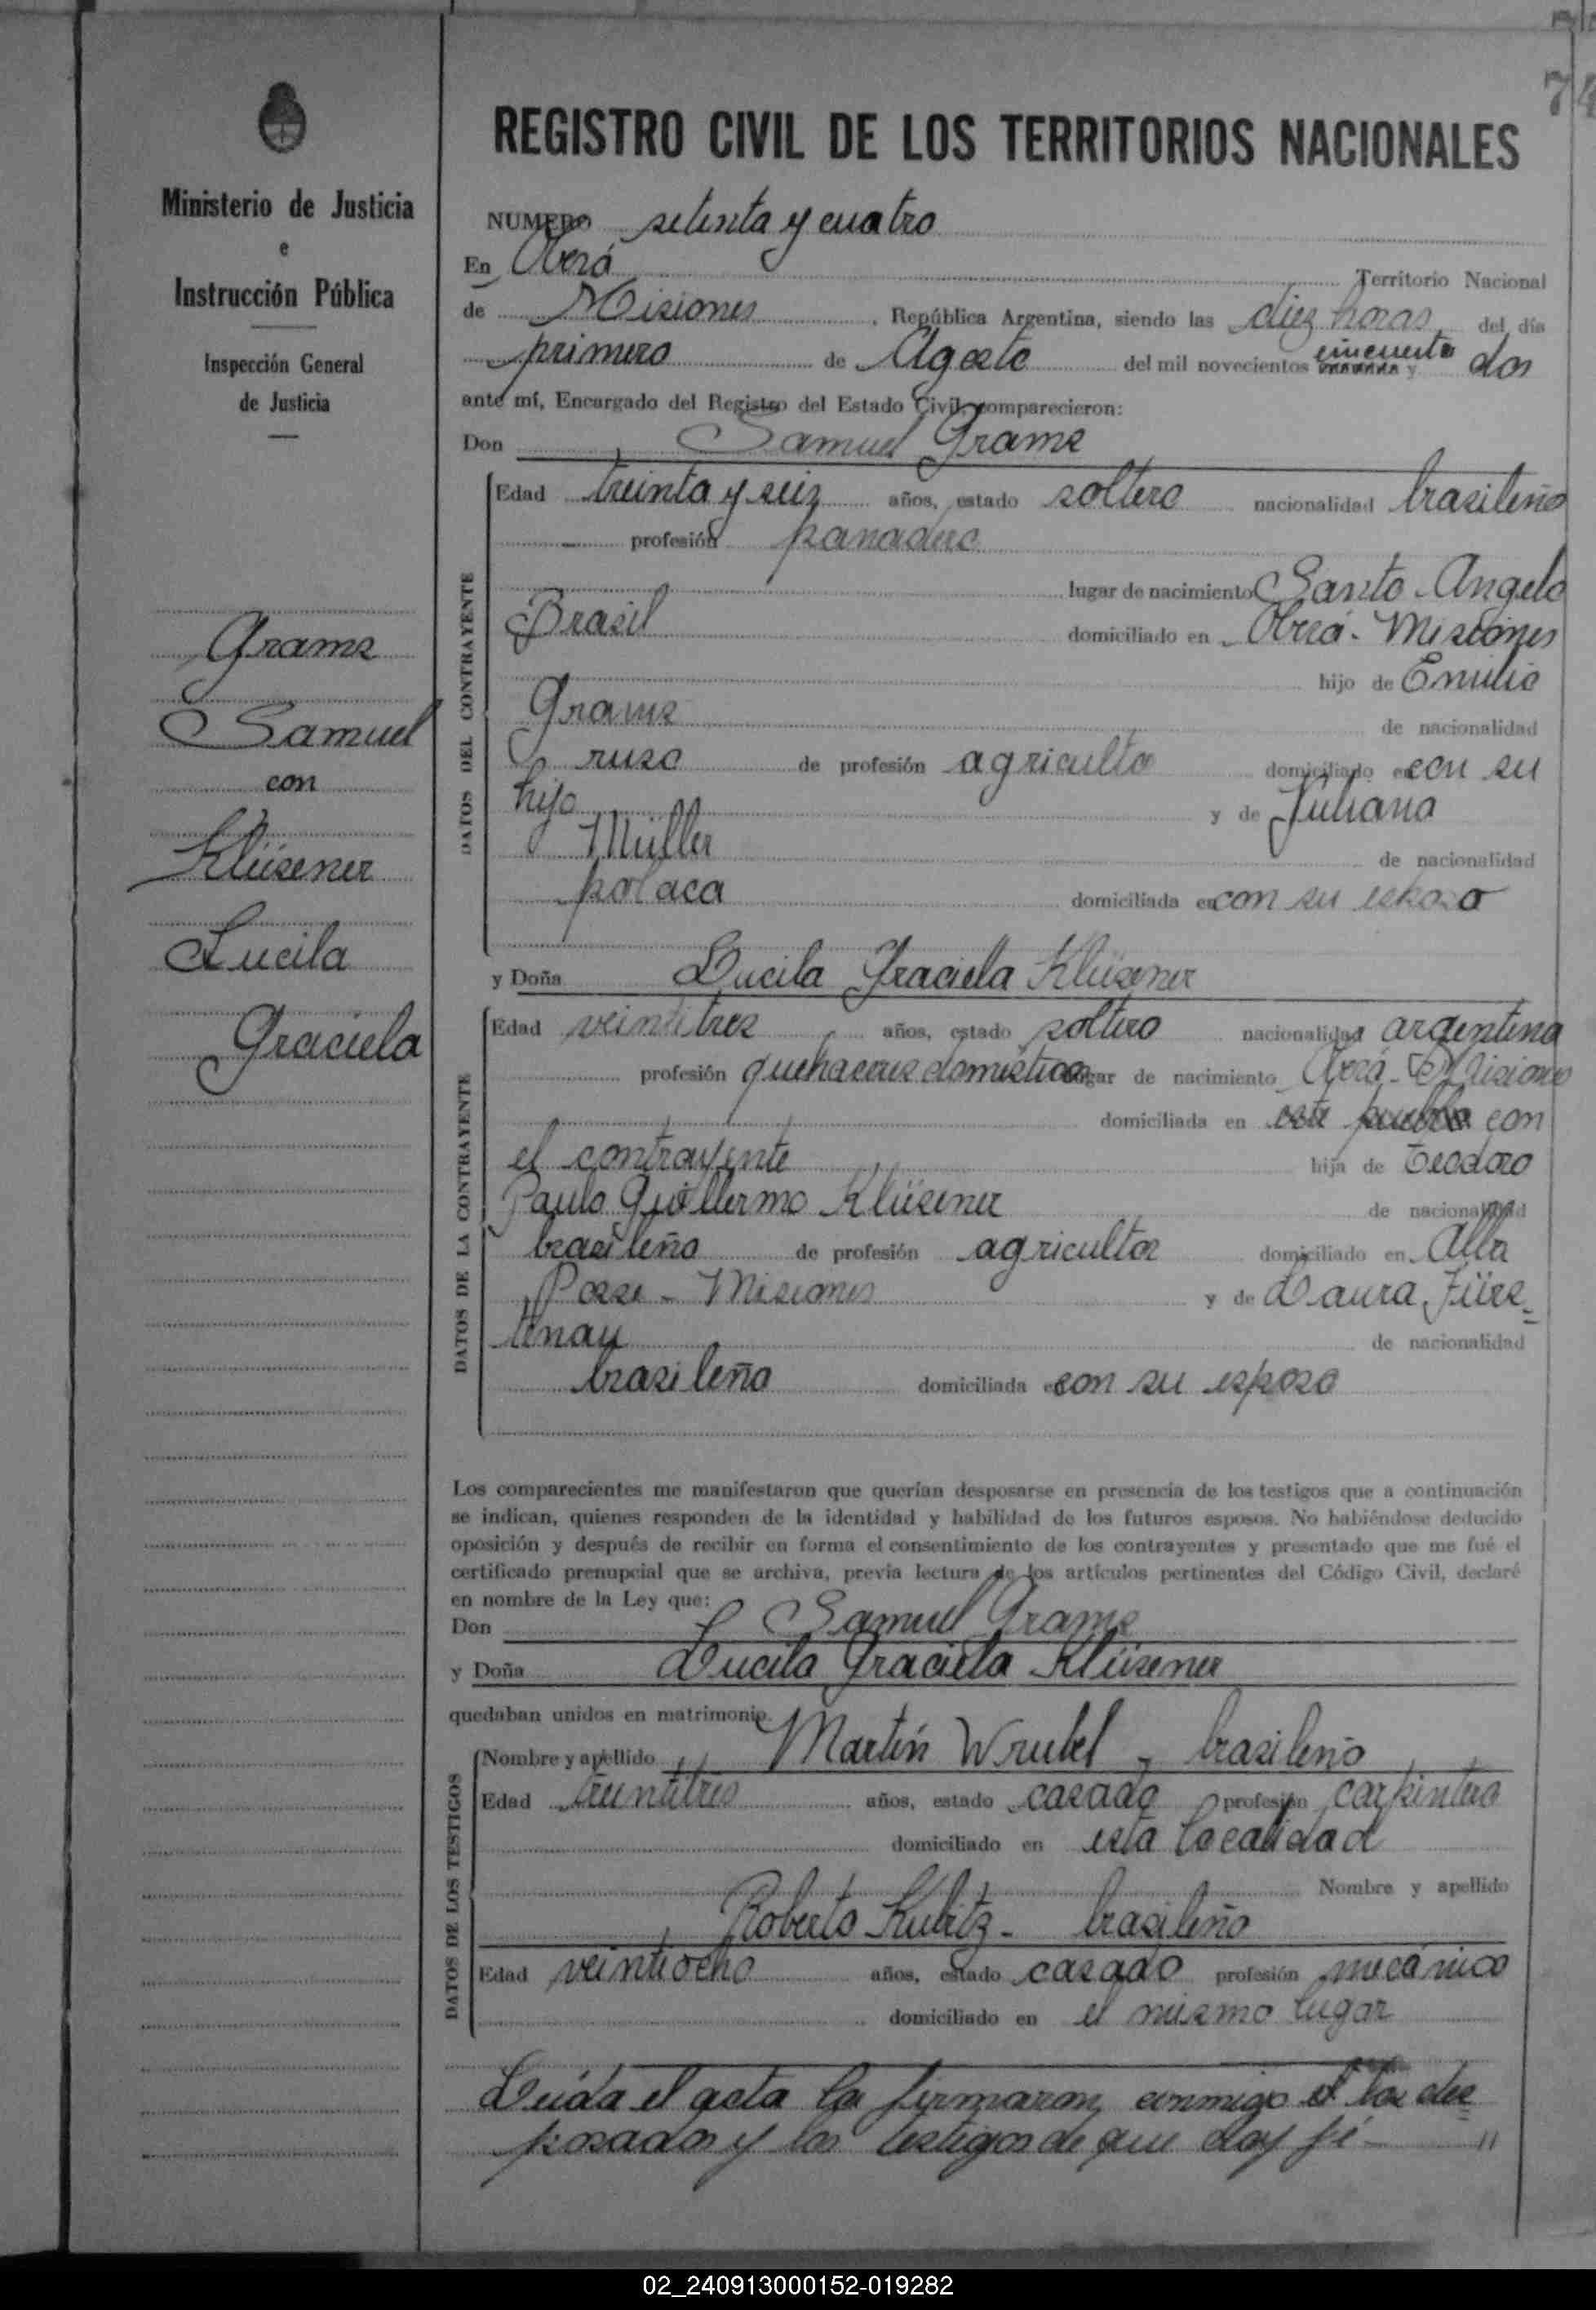 74
REGISTRO CIVIL DE LOS TERRITORIOS NACIONALES
Ministerio de Justicia
e
Instrucción Pública
Inspección General
de Justicia
Grams
Samuel
con
Klüsener
Lucila
Graciela
NUMERO setenta y cuatro
En Oberá Territorio Nacional
de Misiones, República Argentina, siendo las diez horas del día
primero de Agosto del mil novecientos cincuenta y dos
ante mí, Encargado del Registro del Estado Civil, comparecieron:
Don Samuel Grams
DATOS DEL CONTRAYENTE
Edad treinta y seis años, estado soltero nacionalidad brasileño
profesión panadero
lugar de nacimiento Santo Angelo
Brasil domiciliado en Oberá - Misiones
hijo de Emilio
Grams de nacionalidad
ruso de profesión agricultor domiciliado en con su
hijo y de Juliana
Müller de nacionalidad
polaca domiciliada en con su esposo
y Doña Lucila Graciela Klüsener
DATOS DE LA CONTRAYENTE
Edad veintitres años, estado soltero nacionalidad argentina
profesión quehaceres domésticos lugar de nacimiento Oberá - Misiones
domiciliada en este pueblo con
el contrayente hija de Teodoro
Paulo Guillermo Klüsener de nacionalidad
brasileño de profesión agricultor domiciliado en Alba
Posse - Misiones y de Laura Fürs=
tenau de nacionalidad
brasileña domiciliada en con su esposo
Los comparecientes me manifestaron que querían desposarse en presencia de los testigos que a continuación
se indican, quienes responden de la identidad y habilidad de los futuros esposos. No habiéndose deducido
oposición y después de recibir en forma el consentimiento de los contrayentes y presentado que me fué el
certificado prenupcial que se archiva, previa lectura de los artículos pertinentes del Código Civil, declaré
en nombre de la Ley que:
Don Samuel Grams
y Doña Lucila Graciela Klüsener
quedaban unidos en matrimonio.
DATOS DE LOS TESTIGOS
Nombre y apellido Martín Wrubel - brasileño
Edad treintitres años, estado casado profesión carpintero
domiciliado en esta localidad
Nombre y apellido
Roberto Kubitz - brasileño
Edad veintiocho años, estado casado profesión mecánico
domiciliado en el mismo lugar
Leída el acta la firmaron conmigo los des=
posados y los testigos de que doy fé - "
02_240913000152-019282